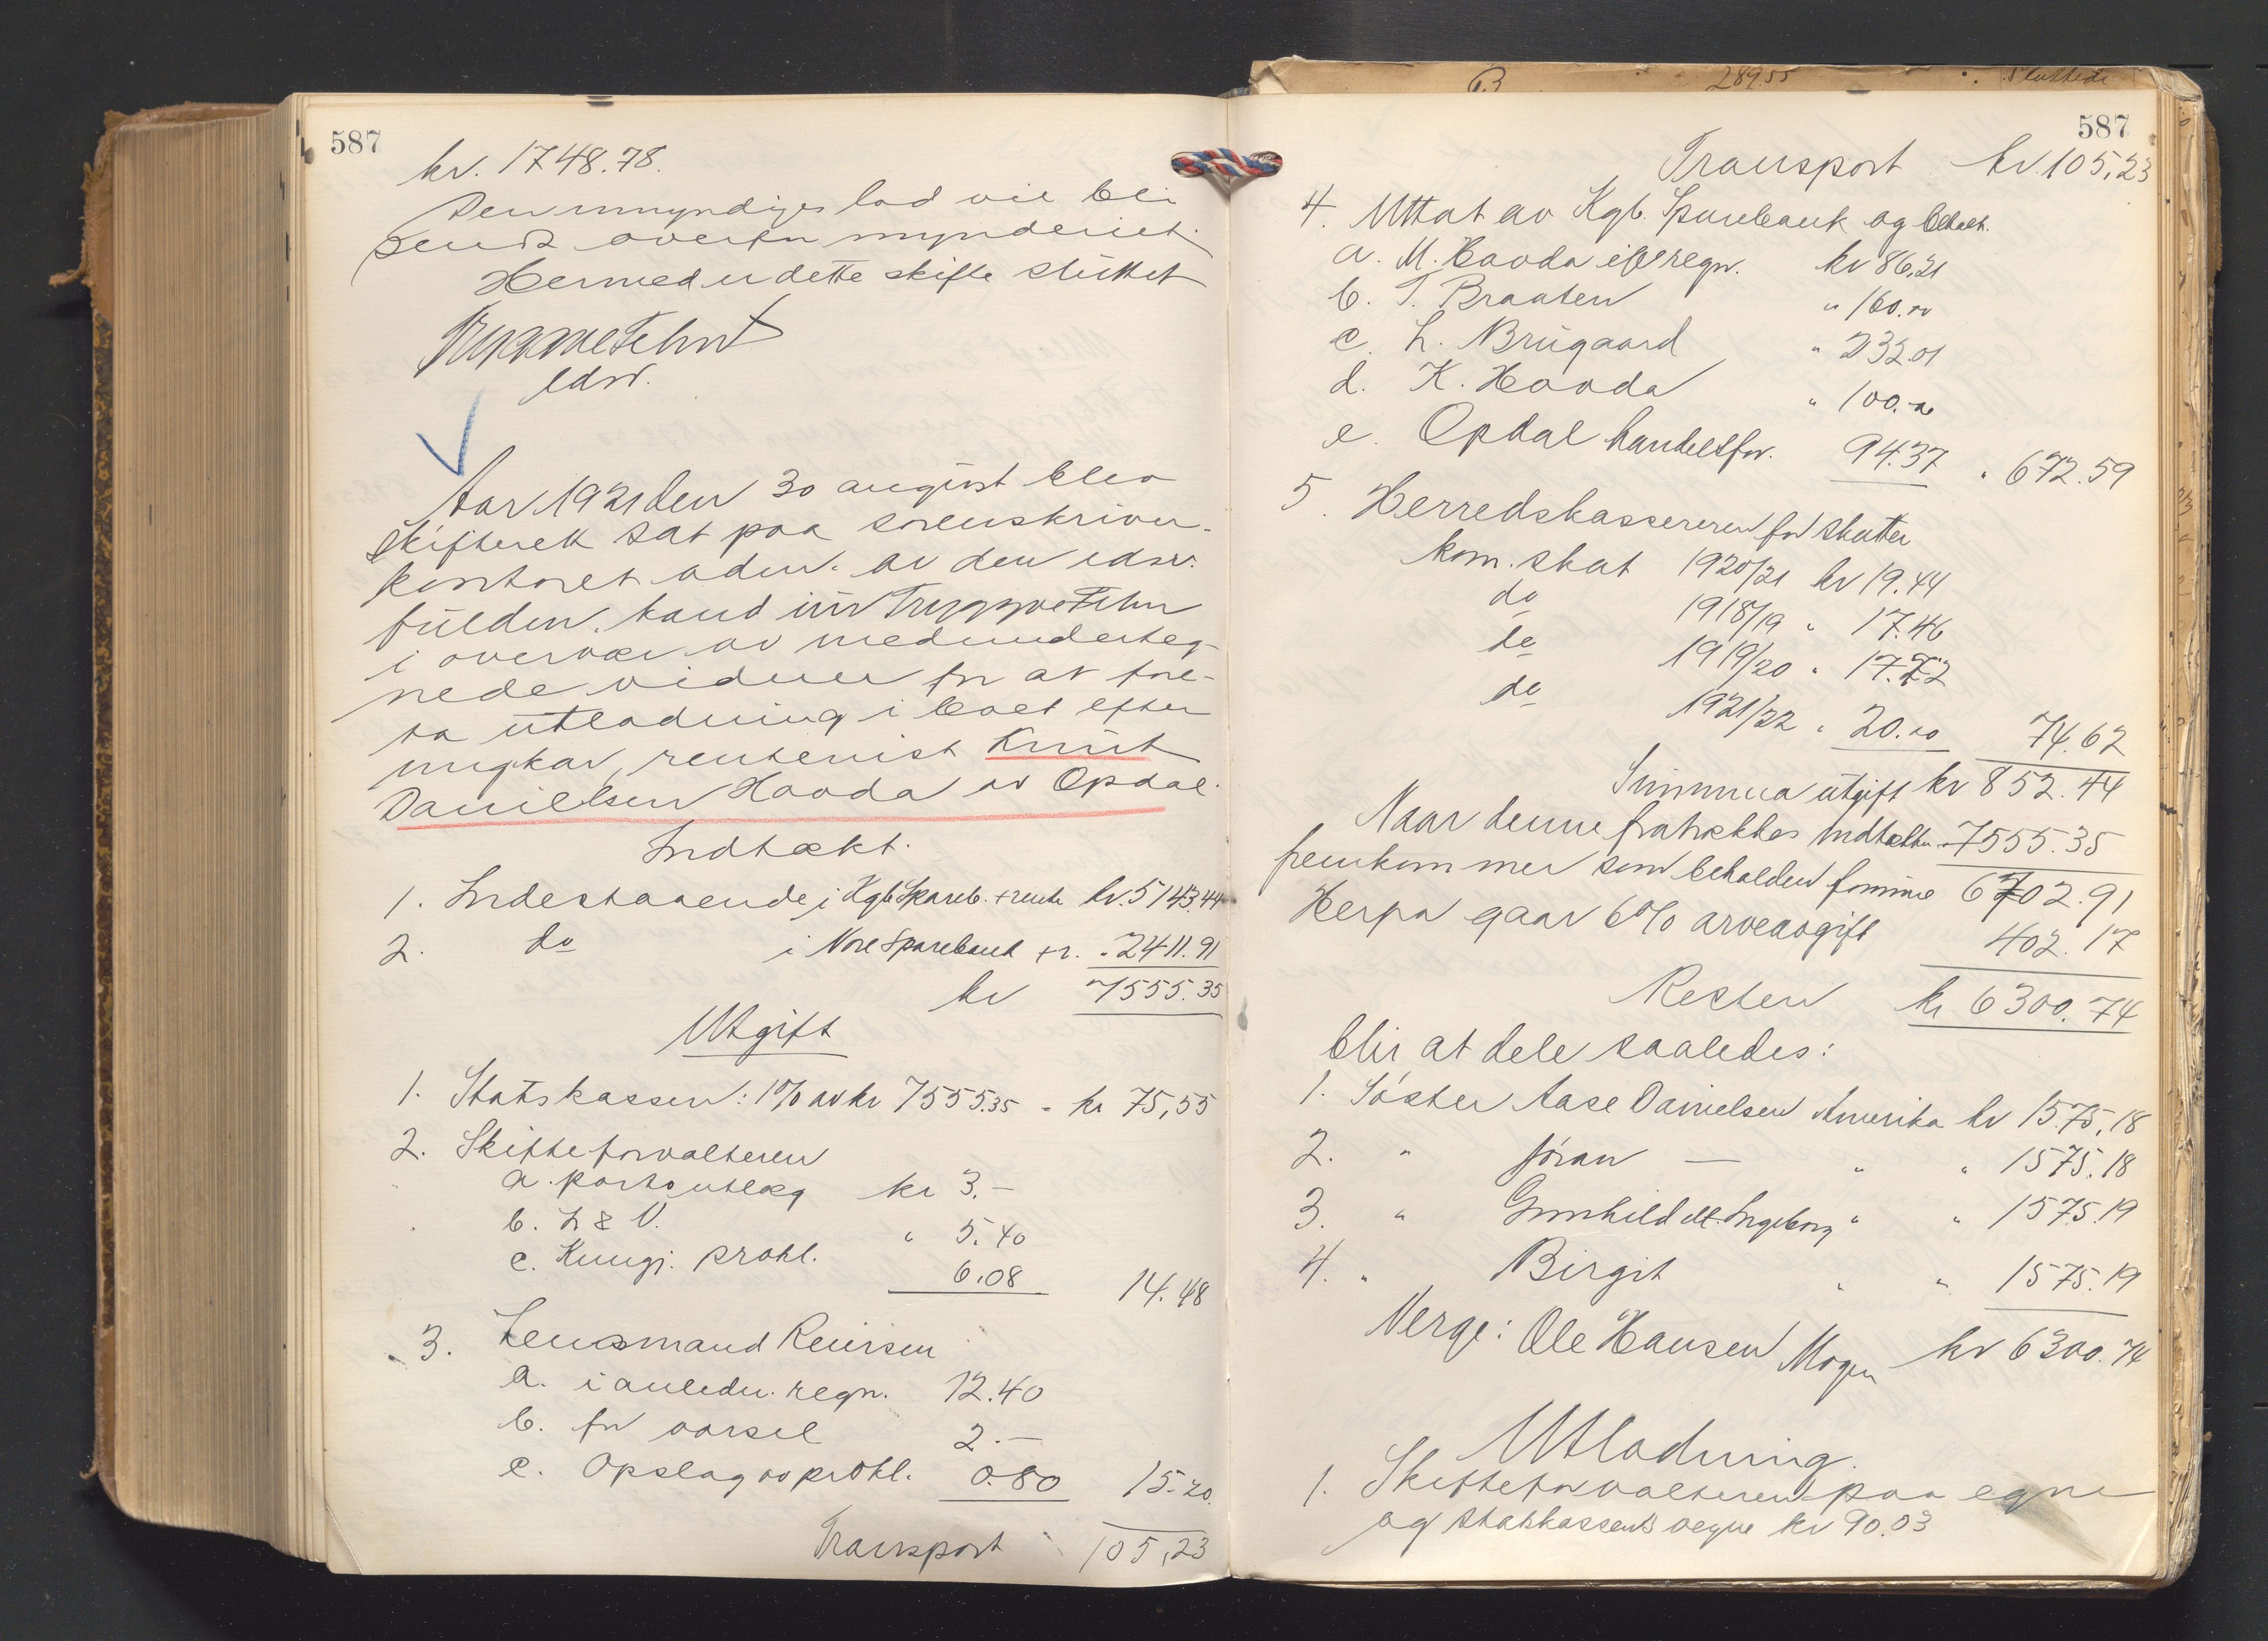 587
kr. 1748.78.
Den umyndiges lod vil bli
sendt overformynderiet.
Hermed er dette skifte sluttet
Trygve Fehn
edsv.
Aar 1921 den 30 august blev
skifterett sat paa sorenskriver-
kontoret adm. av den edsv.
fuldm. cand jur Trygve Fehn
i overvær av medunderteg-
nede vidner for at fore-
ta utlodning i boet efter
ungkar, rentenist Knut
Danielsen Hovda av Opdal.
Indtækt.
1. Indestaaende i Kgb Spareb. + rente kr. 5143.44
2. do i Nore Sparebank + r. " 2411.91
kr 7555.35
Utgift
1. Statskassen: 1% av kr 7555.35 - kr 75,55
2. Skifteforvalteren
a. porto utlæg kr 3.-
b. L & V. " 5.40
c. Kungj. prokl. 6.08 14.48
3. Lensmand Reiersen
a. i anledn. regn. 12.40
b. for varsel 2.-
c. Opslag av prokl. 0.80 15.20.
Transport 105,23
587
Transport kr. 105,23
4. Uttat av Kgb. Sparebank og betalt.
a. M. Hovda ifl regn. kr 86,21
b. T. Braaten " 160.00
c. L. Brugaard " 232.01
d. K. Hovda " 100.00
e. Opdal handelsfor. 94.37 " 672.59
5. Herredskassereren for skatter
kom. skat 1920/21 kr 19.44
do 1918/19 " 17.46
do 1919/20 " 17.72
do 1921/22 " 20.00 74.62
Summa utgift kr 852.44
Naar denne fratrækkes indtækten " 7555.35
fremkommer som beholden formue 6702.91
Herpa gaar 6% arveavgift 402.17
Resten kr 6300.74
blir at dele saaledes:
1. Søster Aase Danielsen Amerika kr 1575,18
2. " Jøran — " " 1575.18
3. " Gunhild ell. Ingeborg " " 1575.19
4. " Birgit " " 1575.19
Verge: Ole Hansen Mogen kr 6300.74
Utlodning.
1. Skifteforvalteren paa egne
og statskassens vegne kr 90.03
289.55
Sluttede